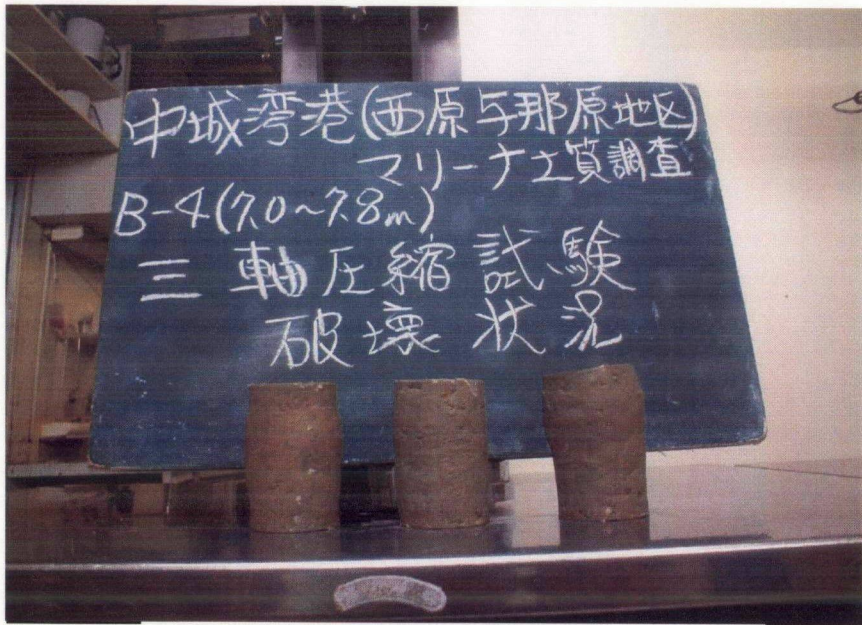 中城湾港(西原与那原地区)
マリーナ土質調査
B-4(7.0~7.8m)
三軸圧縮試験
破壊状況